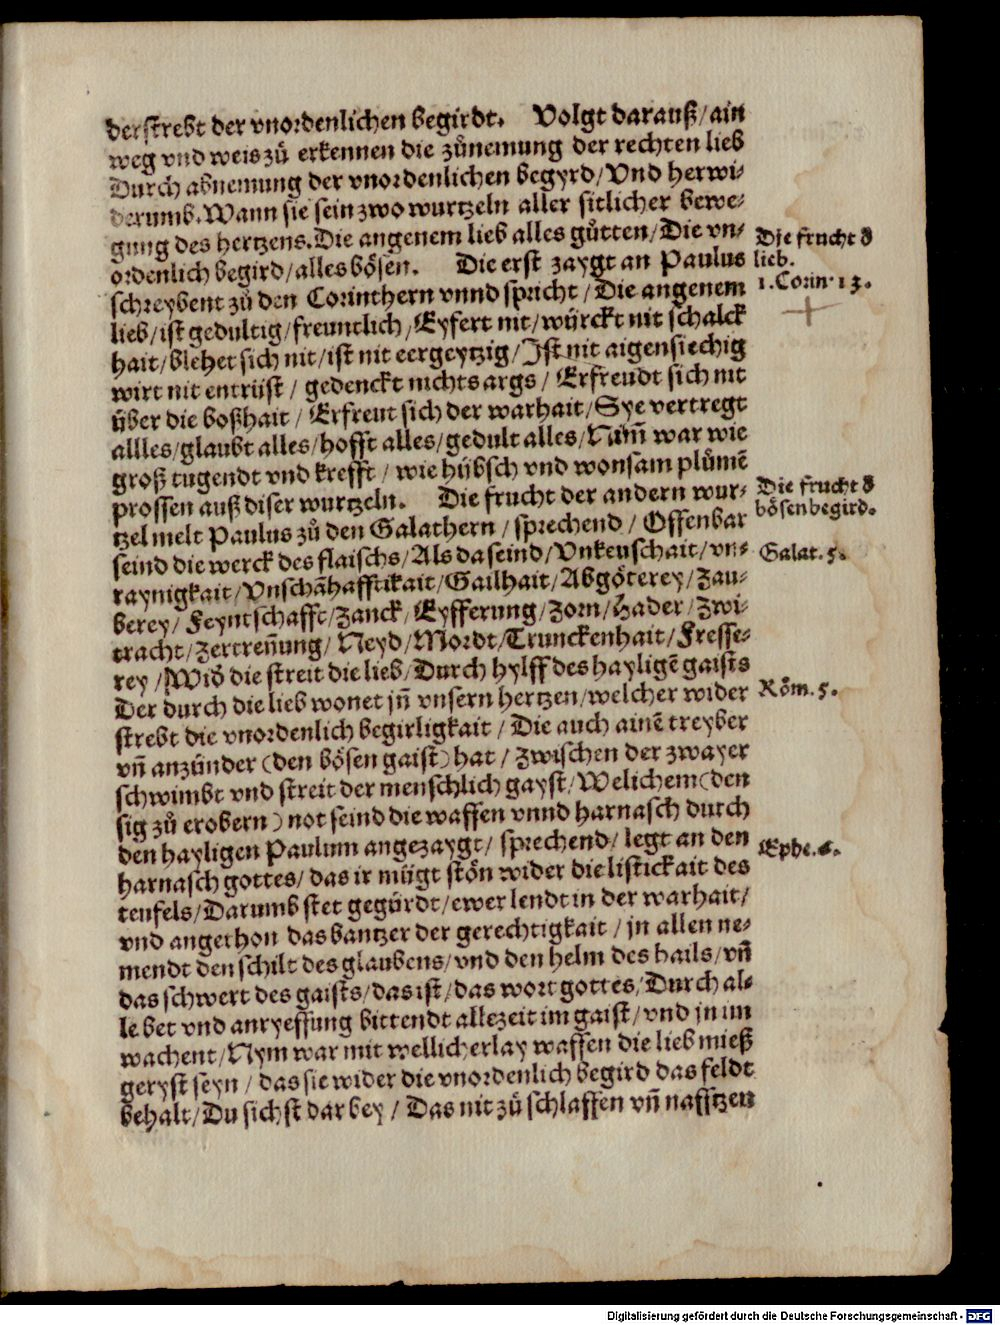 derstrebt der vnordenlichen begirdt. Volgt darauß/ ain
weg vnd weis zů erkennen die zůnemung der rechten lieb
Durch abnemung der vnordenlichen begyrd/ Vnd herwi-
derumb. Wann sie sein zwo wurtzeln aller sitlicher bewe-
gung des hertzens. Die angenem lieb alles gůtten/ Die vn-
ordenlich begird/ alles bösen. Die erst zaygt an Paulus
schreybent zů den Corinthern vnnd spricht/ Die angenem
lieb/ ist gedultig/ freuntlich/ Eyfert nit/ würckt nit schalck
hait/ blehet sich nit/ ist nit eergeytzig/ Ist nit aigensiechig
wirt nit entrüst/ gedenckt nichts args/ Erfreudt sich nit
über die boßhait/ Erfreut sich der warhait/ Sye vertregt
allles/ glaubt alles/ hofft alles/ gedult alles/ Nim̃ war wie
groß tugendt vnd krefft/ wie hübsch vnd wonsam plůmẽ
prossen auß diser wurtzeln. Die frucht der andern wur-
tzel melt Paulus zů den Galathern/ sprechend/ Offenbar
seind die werck des flaischs/ Als da seind/ Vnkeuschait/ vn-
raynigkait/ Vnschãhafftikait/ Gailhait/ Abgöterey/ Zau-
berey/ Feyntschafft/ Zanck/ Eyfferung/ Zorn/ Hader/ Zwi-
tracht/ Zertreñung/ Neyd/ Mordt/ Trunckenhait/ Fresse-
rey/ Wiď die streit die lieb/ Durch hylff des hayligẽ gaists
Der durch die lieb wonet jñ vnsern hertzen/ welcher wider
strebt die vnordenlich begirligkait/ Die auch ainẽ treyber
vñ anzünder (den bösen gaist) hat/ zwischen der zwayer
schwimbt vnd streit der menschlich gayst/ Welichem (den
sig zů erobern) not seind die waffen vnnd harnasch durch
den hayligen Paulum angezaygt/ sprechend/ legt an den
harnasch gottes/ das ir mügt stön wider die listickait des
teufels/ Darumb stet gegürdt/ ewer lendt in der warhait/
vnd angethon das bantzer der gerechtigkait/ jn allen ne-
mendt den schilt des glaubens/ vnd den helm des hails/ vñ
das schwert des gaists/ das ist/ das wort gottes/ Durch al-
le bet vnd anryeffung bittendt allezeit im gaist/ vnd jn im
wachent/ Nym war mit wellicherlay waffen die lieb mieß
geryst seyn/ das sie wider die vnordenlich begird das feldt
behalt/ Du sichst darbey/ Das nit zů schlaffen vñ nafftzen
Die frucht ď
lieb.
1. Corin. 13.
Die frucht ď
bösen begird.
Galat. 5.
Röm. 5.
Ephe. 6.
Digitalisierung gefördert durch die Deutsche Forschungsgemeinschaft - DFG